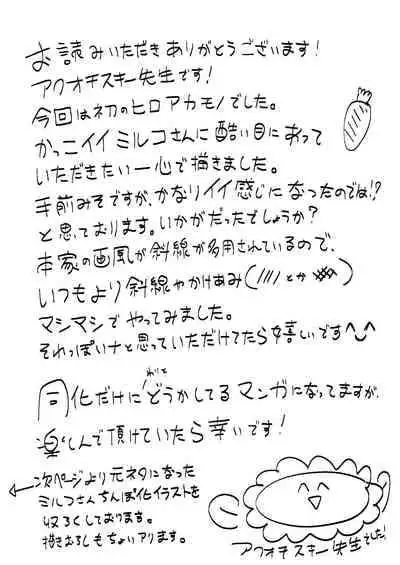 お読みいただきありがとうございます!
アクオチスキー先生です!
今回は初のヒロアカモノでした。
かっこイイミルコさんに酷い目にあって
いただきたい一心で描きました。
手前みそですが、かなりイイ感じになったのでは!?
と思っております。いかがだったでしょうか?
本家の画風が斜線が多用されているので、
いつもより斜線やかけあみ(//// とか )
マシマシでやってみました。
それっぽいナと思っていただけてたら嬉しいです^_^
同化だけにわりとどうかしてるマンガになってますが、
楽しんで頂けていたら幸いです!
←次ページより元ネタになった
ミルコさんちんぽ化イラストを
収ろくしております。
描きおろしもちょいアリます。
アクオチスキー先生でした!